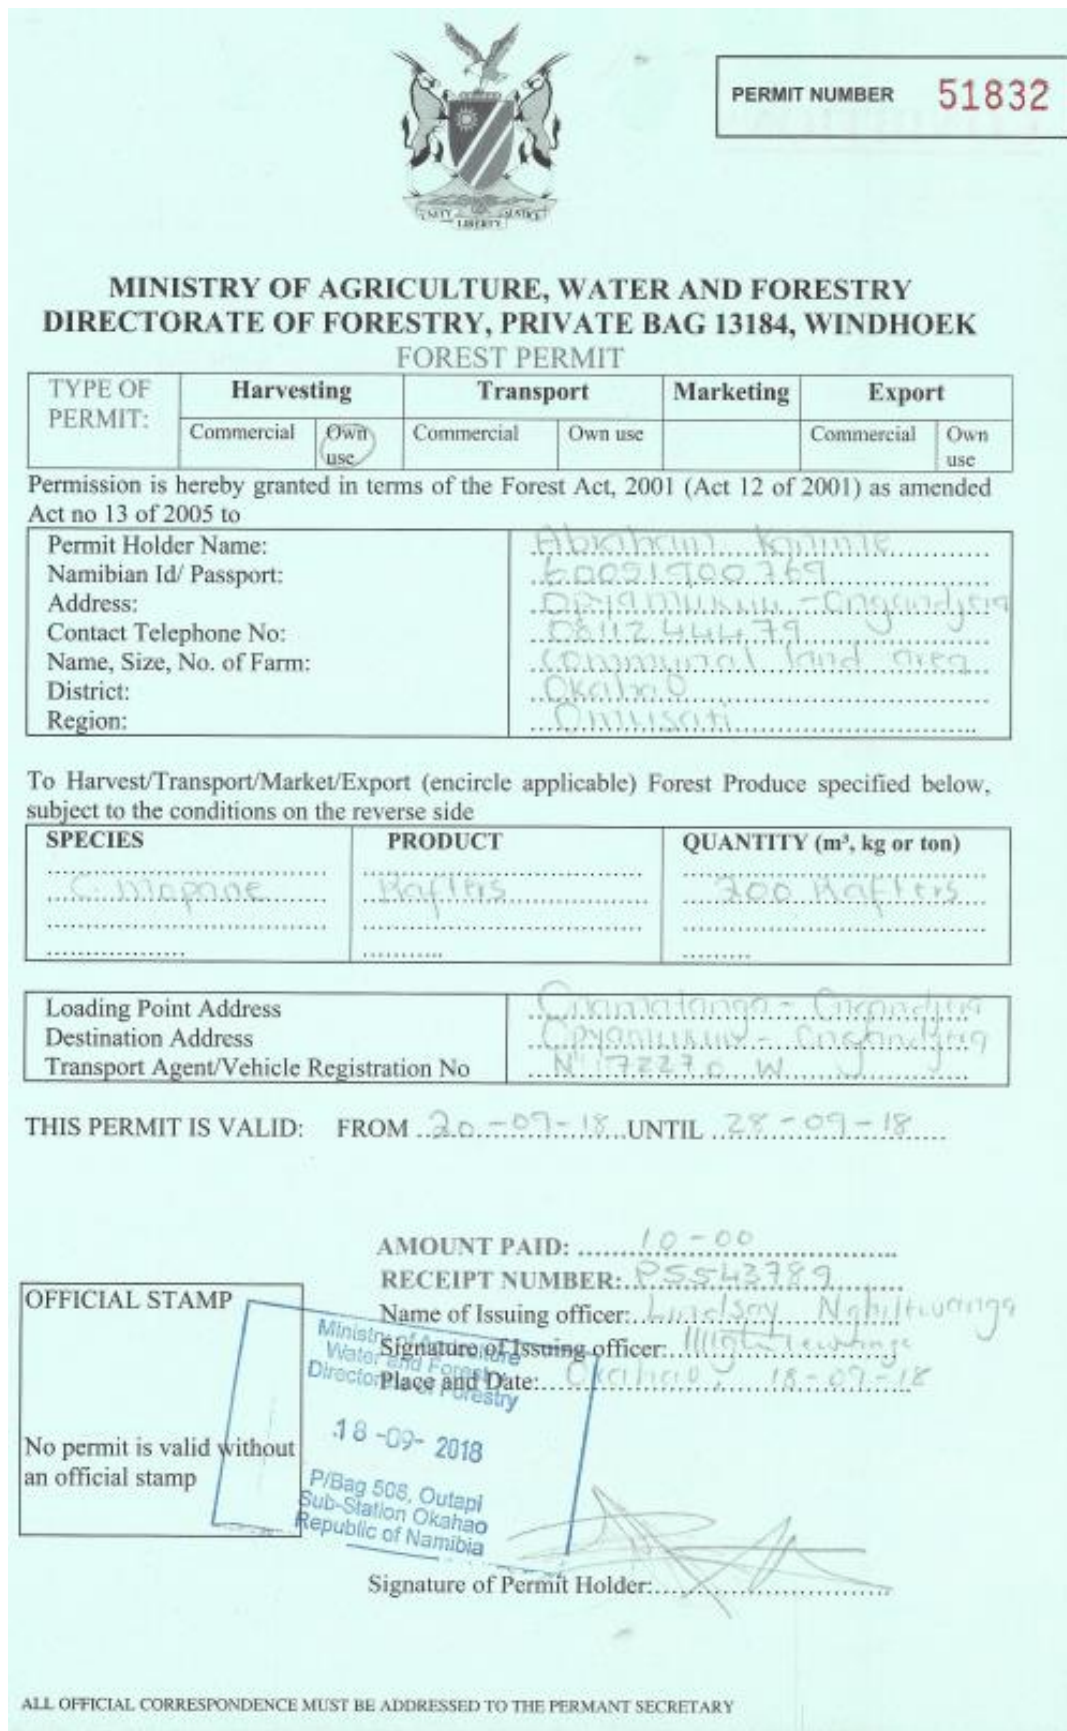 UNITY LIBERTY JUSTICE
PERMIT NUMBER 51832
MINISTRY OF AGRICULTURE, WATER AND FORESTRY
DIRECTORATE OF FORESTRY, PRIVATE BAG 13184, WINDHOEK
FOREST PERMIT
TYPE OF PERMIT: Harvesting Transport Marketing Export
Commercial Own use Commercial Own use Commercial Own use
Permission is hereby granted in terms of the Forest Act, 2001 (Act 12 of 2001) as amended
Act no 13 of 2005 to
Permit Holder Name: Abraham
Namibian Id/ Passport: 60051900769
Address:
Contact Telephone No: 0811244479
Name, Size, No. of Farm: Communal land area
District: Okahao
Region: Omusati
To Harvest/Transport/Market/Export (encircle applicable) Forest Produce specified below,
subject to the conditions on the reverse side
SPECIES PRODUCT QUANTITY (m³, kg or ton)
C. Mopane Rafters 200 Rafters
Loading Point Address
Destination Address
Transport Agent/Vehicle Registration No N 72270 W
THIS PERMIT IS VALID: FROM 20-09-18 UNTIL 28-09-18
AMOUNT PAID: 10-00
RECEIPT NUMBER: P5543789
OFFICIAL STAMP
Name of Issuing officer: Lindsay
Signature of Issuing officer:
Place and Date: Okahao, 18-09-18
Ministry of Agriculture
Water and Forestry
Directorate of Forestry
18-09-2018
No permit is valid without
an official stamp
P/Bag 508, Outapi
Sub-Station Okahao
Republic of Namibia
Signature of Permit Holder:
ALL OFFICIAL CORRESPONDENCE MUST BE ADDRESSED TO THE PERMANT SECRETARY